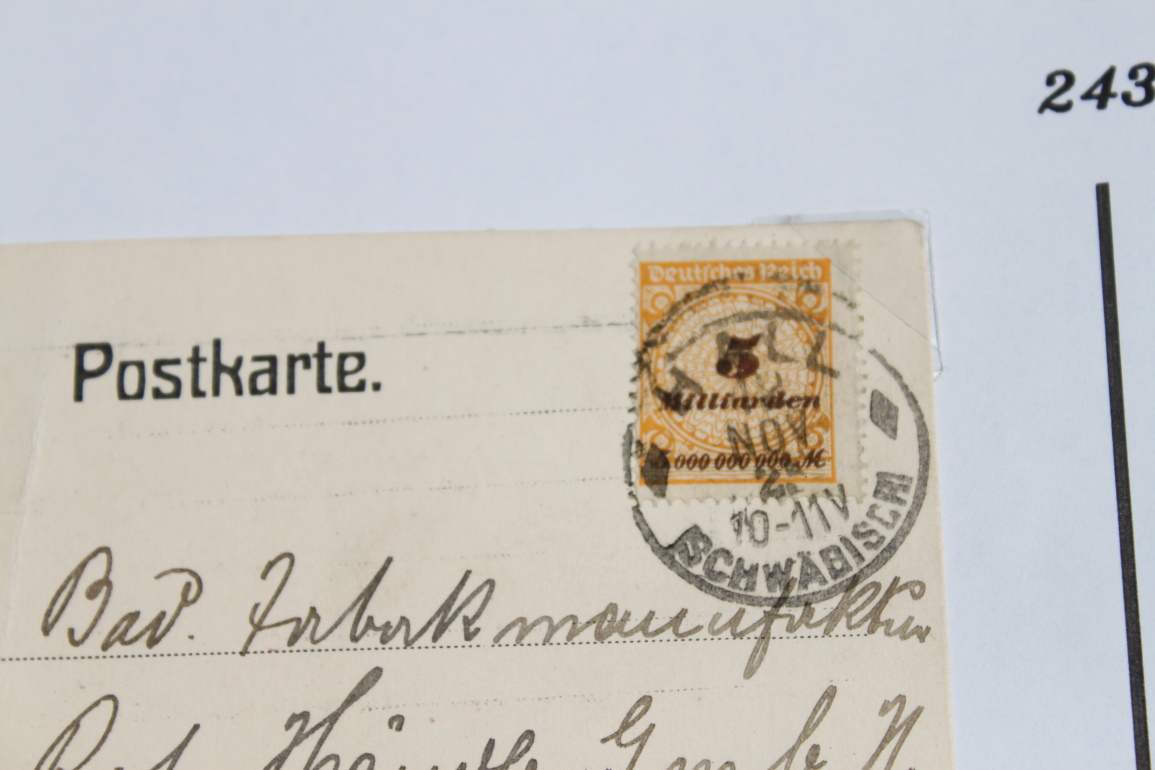 243
Deutsches Reich
5
Milliarden
5 000 000 000 M
HALL
NOV
10-11V
(SCHWÄBISCH)
Postkarte.
Bad. Tabakmanufaktur
G.m.b.H.